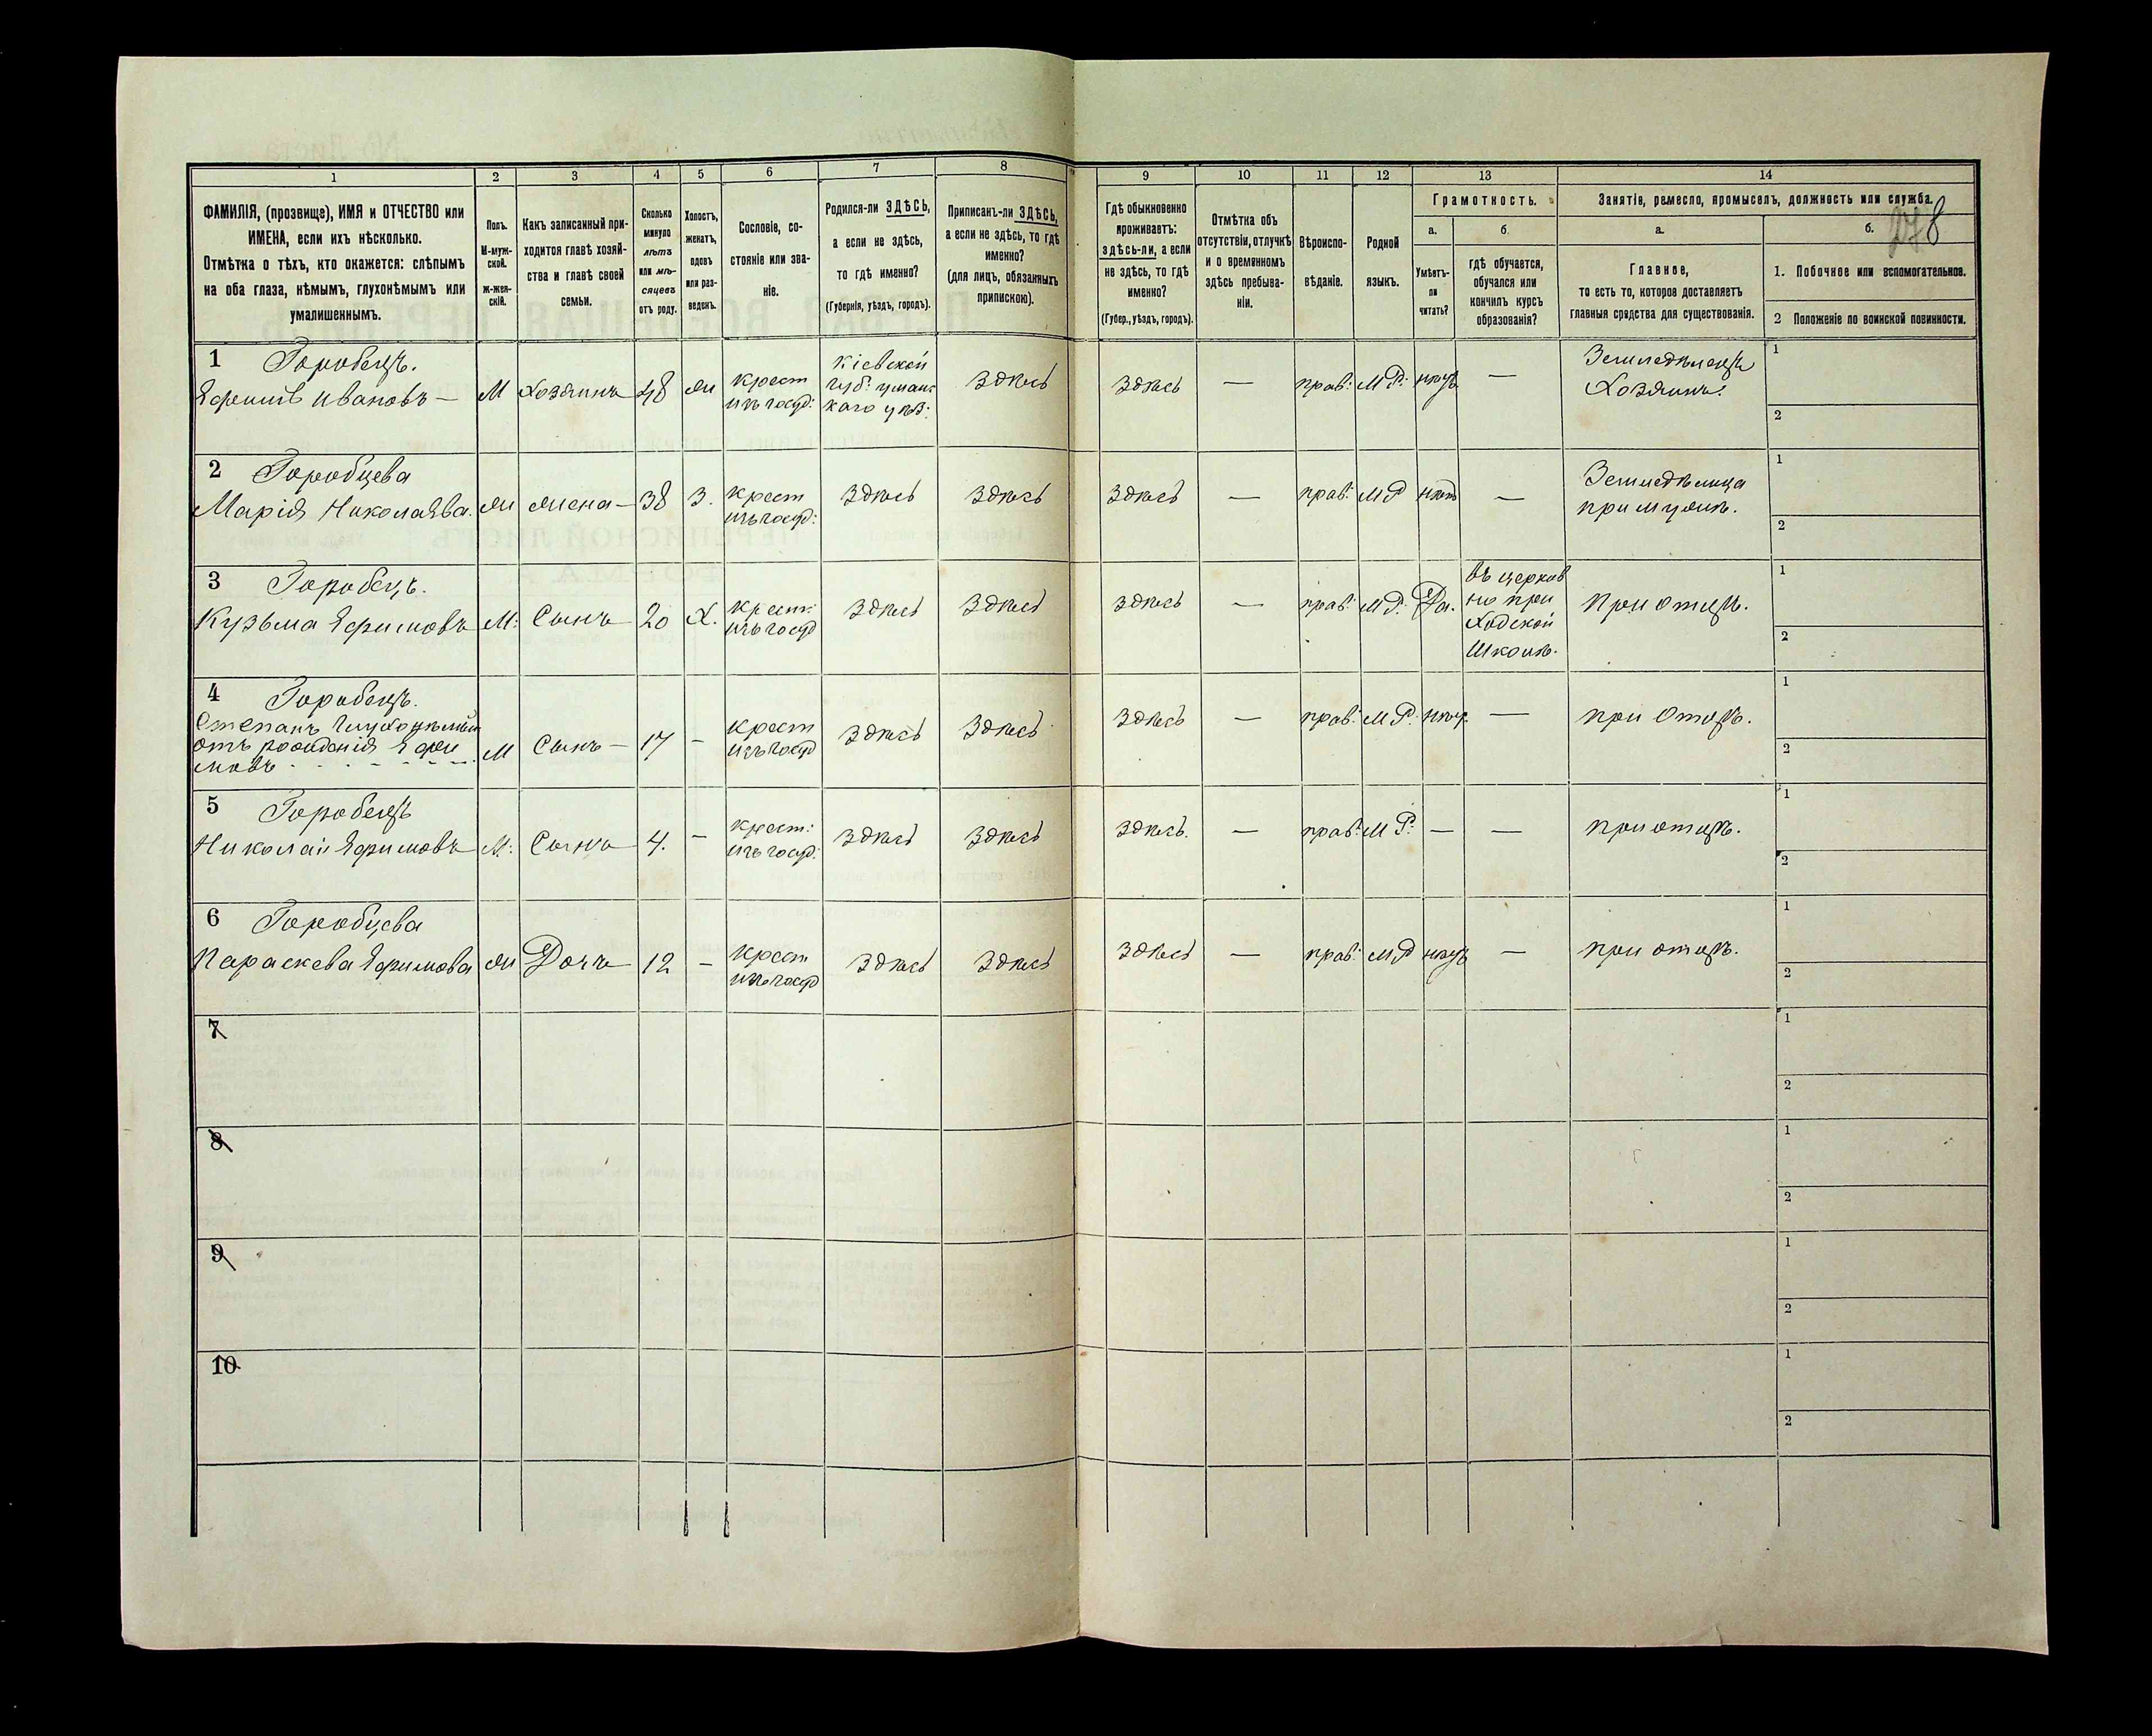 1 2 3 4 5 6 7 8 9 10 11 12 13 14
ФАМИЛІЯ, (прозвище), ИМЯ и ОТЧЕСТВО или
ИМЕНА, если ихъ нѣсколько.
Отмѣтка о тѣхъ, кто окажется: слѣпымъ
на оба глаза, нѣмымъ, глухонѣмымъ или
умалишеннымъ.
Полъ.
М-муж-
ской.
ж-жен-
скій.
Какъ записанный при-
ходится главѣ хозяй-
ства и главѣ своей
семьи.
Сколько
минуло
лѣтъ
или мѣ-
сяцевъ
отъ роду.
Холостъ,
женатъ,
вдовъ
или раз-
веденъ.
Сословіе, со-
стояніе или зва-
ніе.
Родился-ли ЗДѢСЬ,
а если не здѣсь,
то гдѣ именно?
(Губернія, уѣздъ, городъ).
Приписанъ-ли ЗДѢСЬ,
а если не здѣсь, то гдѣ
именно?
(для лицъ, обязанныхъ
припискою).
Гдѣ обыкновенно
проживаетъ:
здѣсь-ли, а если
не здѣсь, то гдѣ
именно?
(Губер., уѣздъ, городъ).
Отмѣтка объ
отсутствіи, отлучкѣ
и о временномъ
здѣсь пребыва-
ніи.
Вѣроиспо-
вѣданіе.
Родной
языкъ.
Грамотность.
а.
Умѣетъ-
ли
читать?
б.
гдѣ обучается,
обучался или
кончилъ курсъ
образованія?
Занятіе, ремесло, промыселъ, должность или служба.
а.
Главное,
то есть то, которое доставляетъ
главныя средства для существованія.
б.
278
1. Побочное или вспомогательное.
2 Положеніе по воинской повинности.
1 Горобецъ.
Ефимъ Ивановъ —
М Хозяинъ 48 ж
крест
изъ госуд:
Кіевской
губ: уманс
каго уѣз:
Здѣсь
Здѣсь — прав: М Р: нѣтъ —
Земледѣлецъ
Хозяинъ.
1
2
2 Горобцева
Марія Николаева.
ж жена — 38 З.
крест
изъ госуд:
Здѣсь Здѣсь
Здѣсь — прав: М Р нѣтъ —
Земледѣлица
при мужѣ.
1
2
3 Горобецъ.
Кузьма Ефимовъ
М: Сынъ 20 Х.
крест:
изъ госуд
Здѣсь Здѣсь
Здѣсь — прав: М Р: Да.
въ церков
но при
ходской
школѣ.
При отцѣ.
1
2
4 Горобецъ.
Степанъ глухонѣмый
отъ рожденія Ефи
мовъ
М Сынъ — 17 -
крест
изъ госуд
Здѣсь Здѣсь
Здѣсь — прав: М Р: нѣт —
при Отцѣ.
1
2
5 Горобецъ
Николай Ефимовъ
М: Сынъ 4. —
крест:
изъ госуд:
Здѣсь Здѣсь
Здѣсь. — прав: М Р: — —
при отцѣ.
1
2
6 Горобцева
Параскева Ефимова
ж Дочь 12 —
крест
изъ госуд
Здѣсь Здѣсь
Здѣсь — прав: М Р нѣтъ —
при отцѣ.
1
2
7
1
2
8
1
2
9
1
2
10
1
2